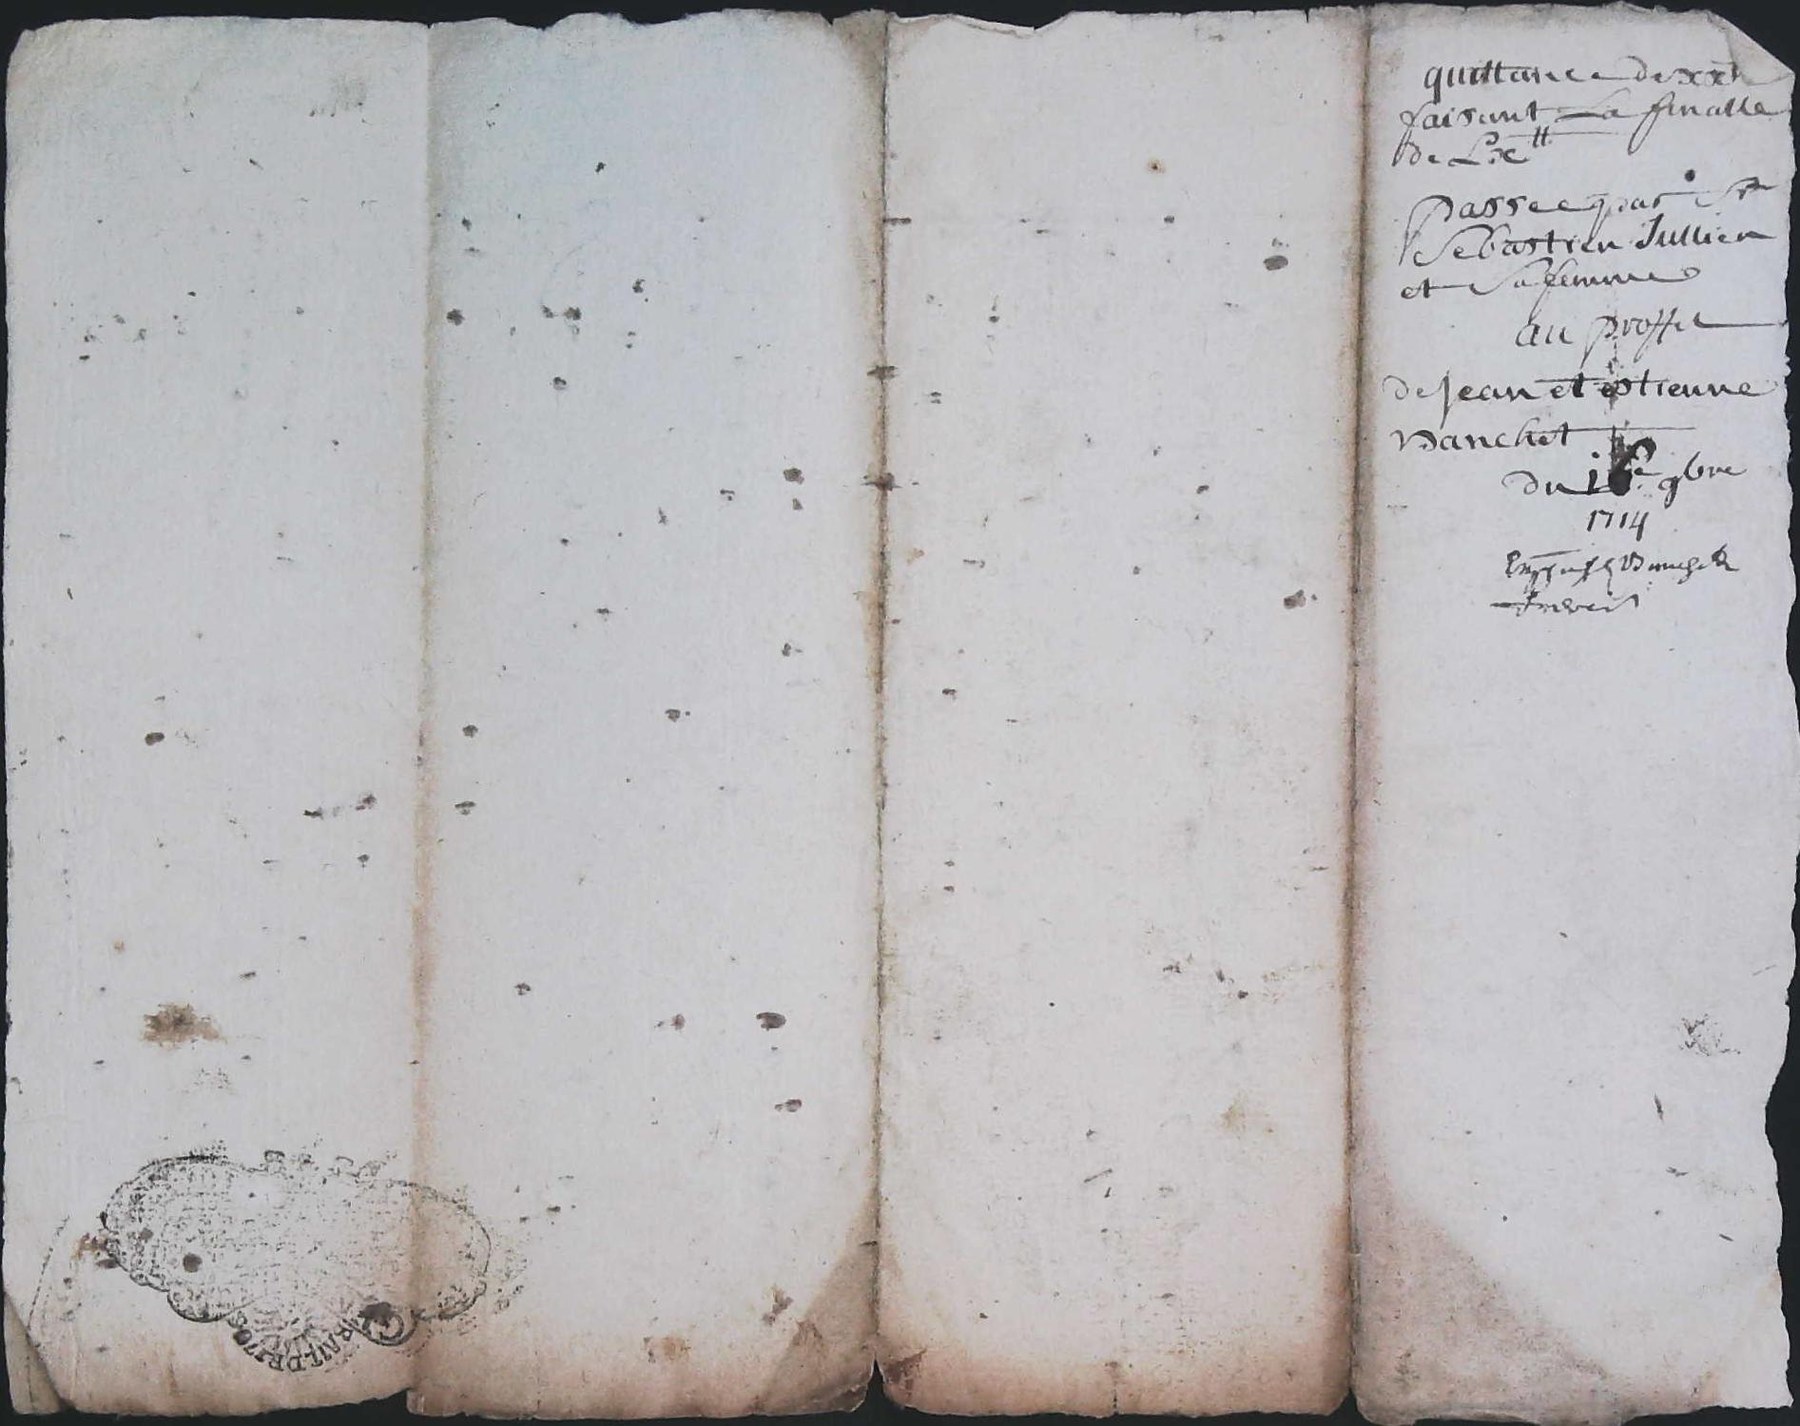 quittance de xxtt
faisant La finalle
de Lxtt
passee par Sr
Sebastien Jullien
et Sa femme
au proffit
de Jean et estienne
Vanchet
du 9bre
1714